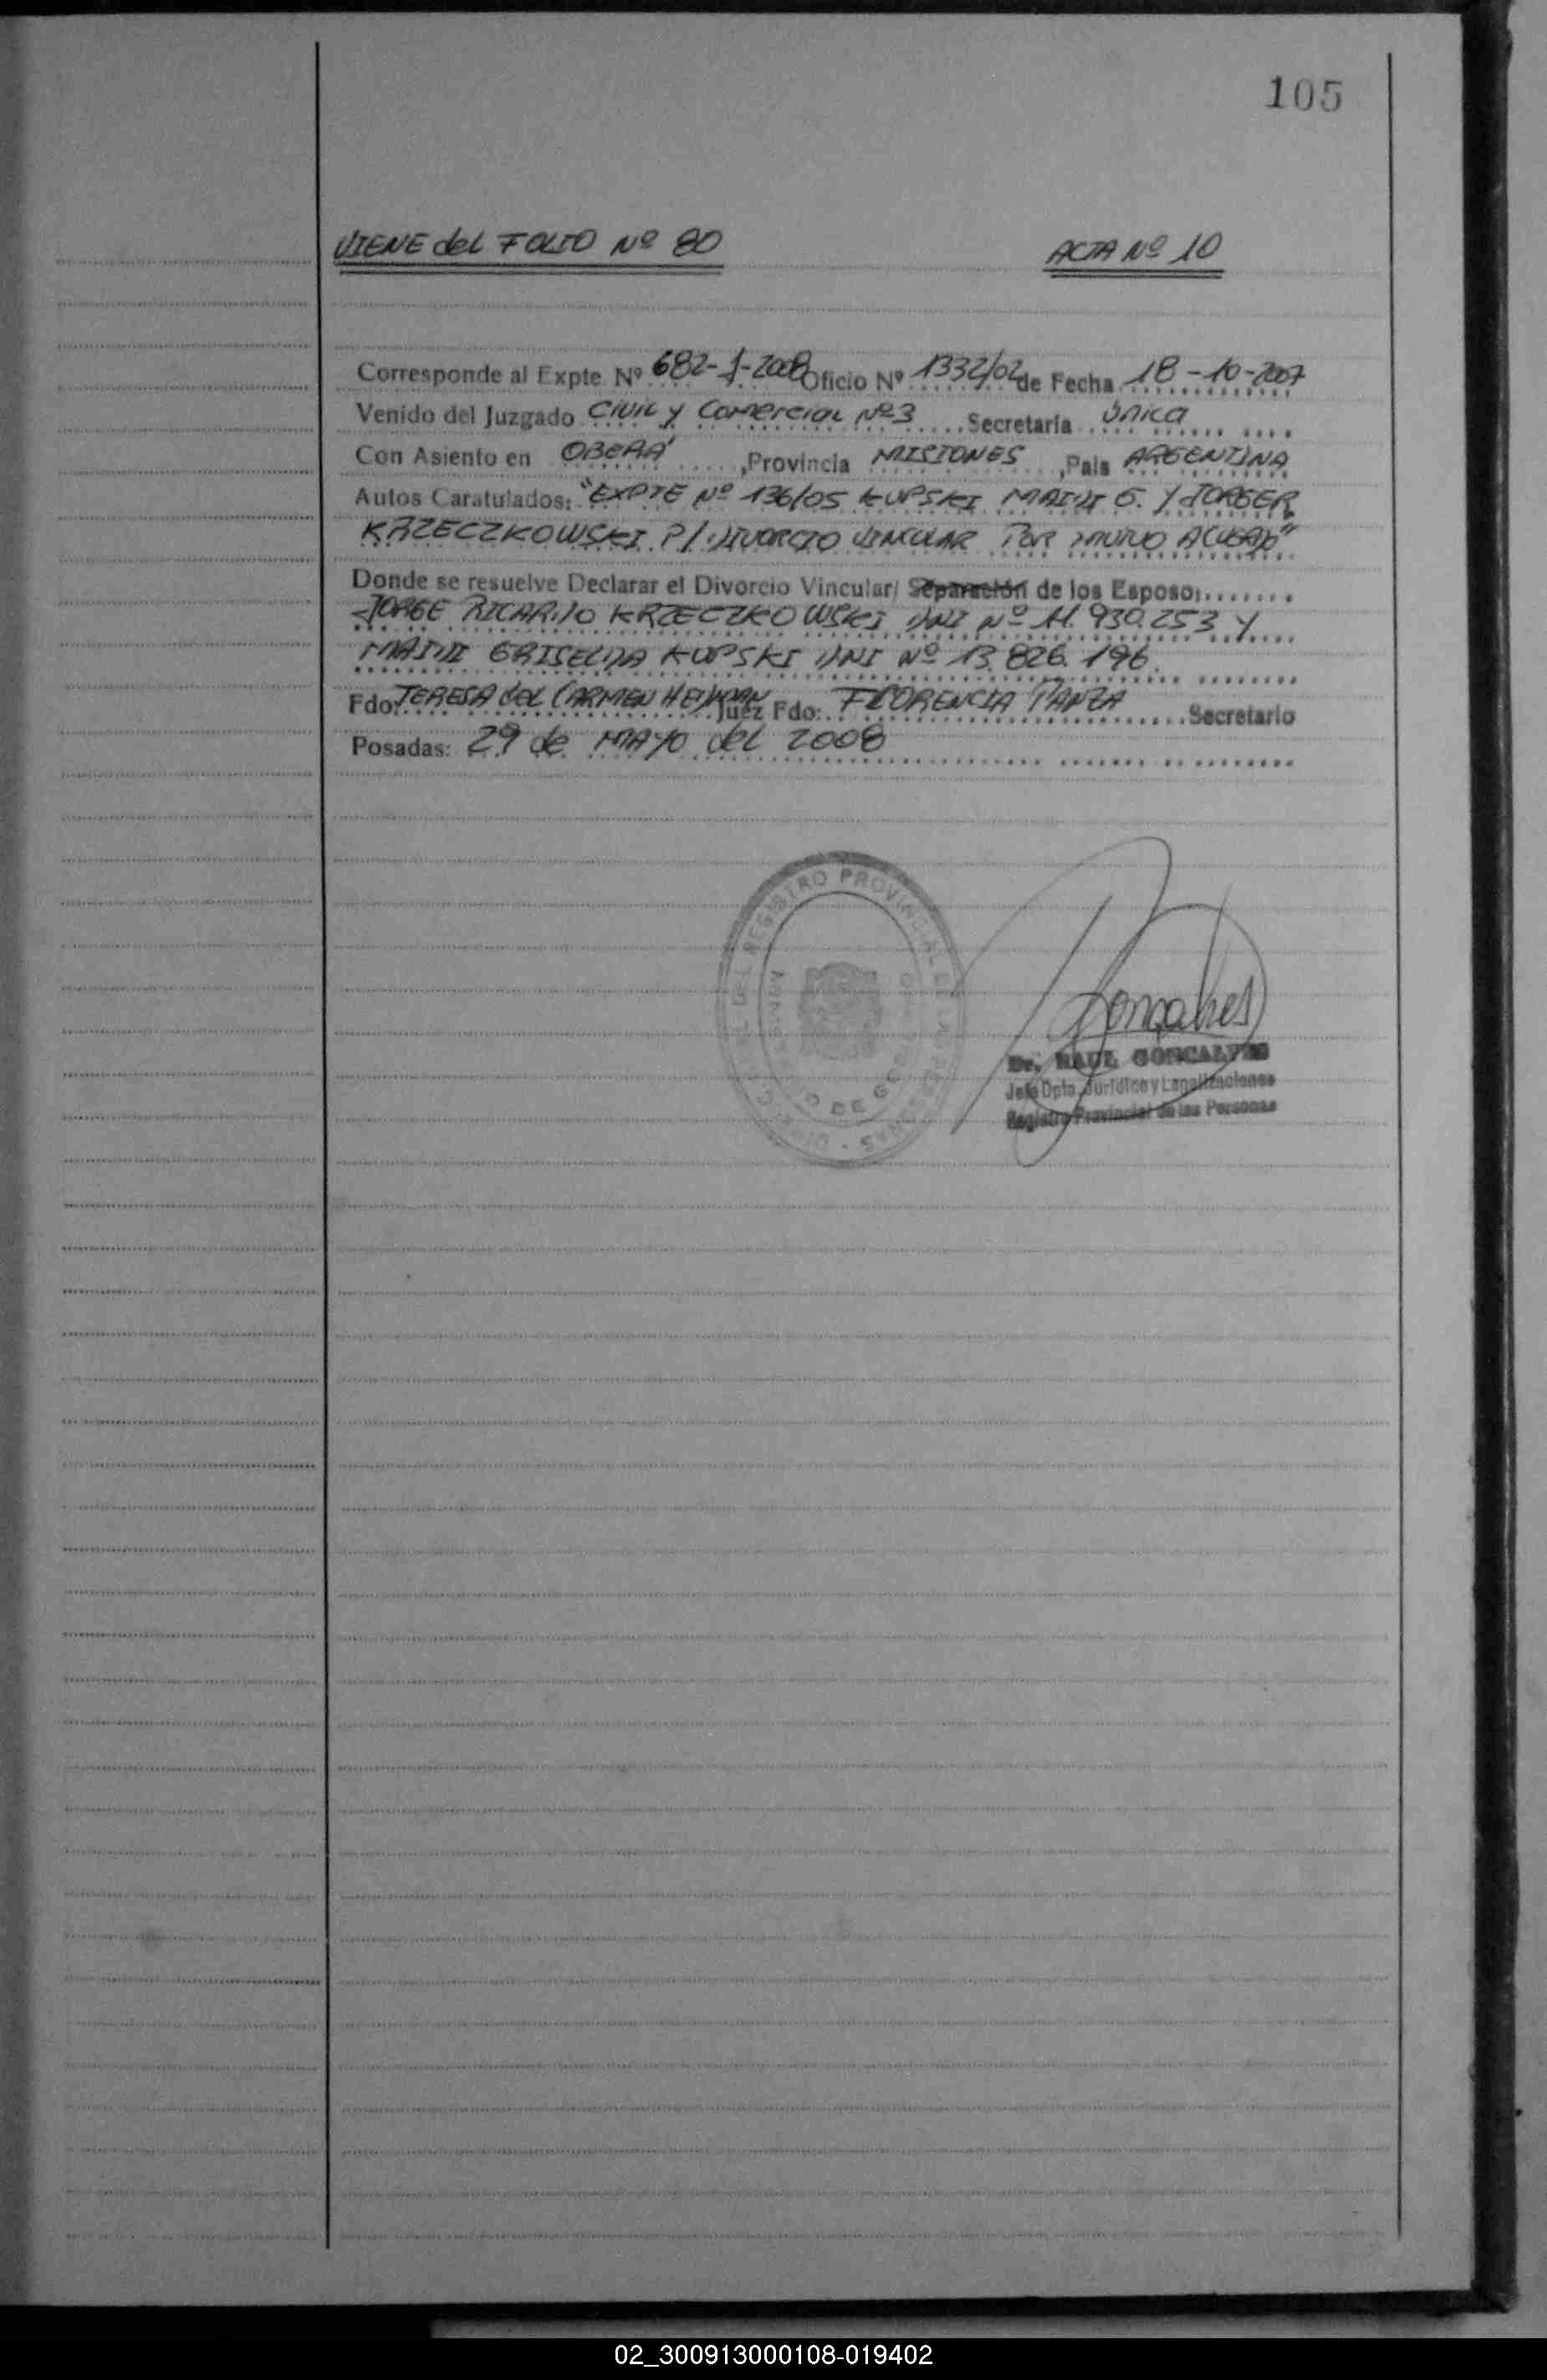 105
VIENE del FOLIO Nº 80 ACTA Nº 10
Corresponde al Expte Nº 682-J-2008 Oficio Nº 1332/02 de Fecha 18-10-2007
Venido del Juzgado Civil y Comercial Nº3 Secretaria Única
Con Asiento en OBERÁ, Provincia MISIONES, Pais ARGENTINA
Autos Caratulados: "EXPTE Nº 136/05 KUPSKI MAIDI G. Y JORGE R
KRZECZKOWSKI P/ DIVORCIO VINCULAR POR MUTUO ACUERDO"
Donde se resuelve Declarar el Divorcio Vincular/ Separación de los Esposo:
JORGE RICARDO KRZECZKOWSKI DNI Nº 11.930.253 Y
MAIDI GRISELDA KUPSKI DNI Nº 13.826.196.
Fdo: TERESA del CARMEN Juez Fdo: FLORENCIA PANZA Secretario
Posadas: 29 de MAYO del 2008
REGISTRO PROVINCIAL DE LAS PERSONAS
Goncalves
Dr. RAUL GONCALVES
Jefe Dpto. Jurídico y Legalizaciones
Registro Provincial de las Personas
02_300913000108-019402